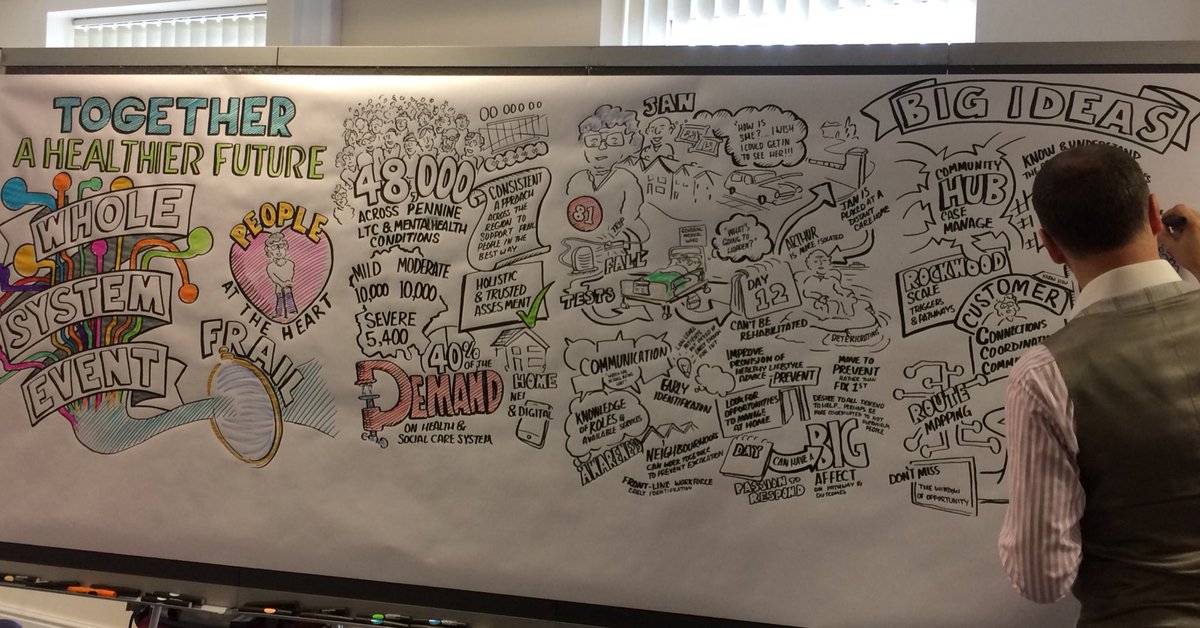 TOGETHER
A HEALTHIER FUTURE
WHOLE
SYSTEM
EVENT
PEOPLE
AT THE HEART
FRAIL
48,000
ACROSS PENNINE
LTC & MENTAL HEALTH
CONDITIONS
MILD MODERATE
10,000 10,000
SEVERE
5,400
40%
OF THE
DEMAND
ON HEALTH &
SOCIAL CARE SYSTEM
CONSISTENT
APPROACH
ACROSS THE
REGION TO
SUPPORT FRAIL
PEOPLE IN THE
BEST WAY
HOLISTIC
& TRUSTED
ASSESMENT
HOME
& DIGITAL
JAN
81
TRIP
FALL
TESTS
HOW IS
SHE?... I WISH
I COULD GET IN
TO SEE HER!!!
GENERAL
MEDICAL
WARD
WHAT'S
GOING TO
HAPPEN?
ARTHUR
IS MORE ISOLATED
JAN IS
PLACED AT A
DISTANT
CARE HOME
DAY
12
CAN'T BE
REHABILITATED
DETERIORATING
COMMUNICATION
EARLY
IDENTIFICATION
KNOWLEDGE
OF ROLES &
AVAILABLE SERVICES
AWARENESS
NEIGHBOURHOODS
CAN WORK TOGETHER
TO PREVENT ESCALATION
FRONT-LINE WORKFORCE
EARLY IDENTIFICATION
IMPROVE
PROVISION OF
HEALTHY LIFESTYLE
ADVICE
PREVENT
LOOK FOR
OPPORTUNITIES
TO MANAGE
AT HOME
MOVE TO
PREVENT
RATHER THAN
FIX 1ST
DAY
CAN HAVE A
BIG
AFFECT
ON PATHWAY &
OUTCOMES
PASSION TO
RESPOND
BIG IDEAS
COMMUNITY
HUB
CASE
MANAGE
KNOW & UNDERSTAND
ROCKWOOD
SCALE
TRIGGERS
& PATHWAYS
CUSTOMER
CONNECTIONS
ROUTE
MAPPING
DON'T MISS
THE WINDOW
OF OPPORTUNITY